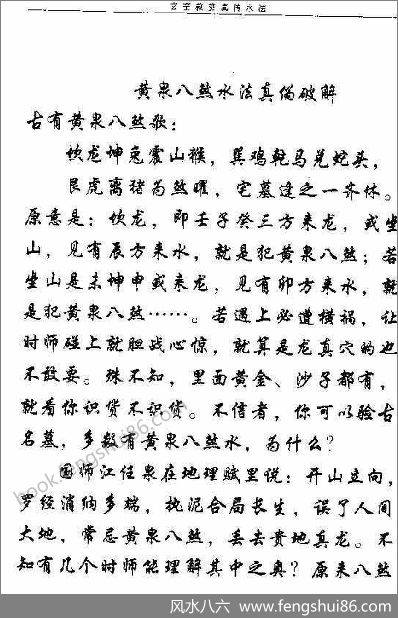 玄空救贫真传水法
黄泉八煞水法真伪破解
古有黄泉八煞歌：
坎龙坤兔震山猴，巽鸡乾马兑蛇头，
艮虎离猪为煞曜，宅墓逢之一齐休。
原意是：坎龙，即壬子癸三方来龙，或坐
山，见有辰方来水，就是犯黄泉八煞；若
坐山是未坤申或来龙，见有卯方来水，就
是犯黄泉八煞……。若遇上必遭横祸，让
时师碰上就胆战心惊，就算是龙真穴的也
不敢要。殊不知，里面黄金、沙子都有，
就看你识货不识货。不信者，你可以验古
名墓，多数有黄泉八煞水，为什么？
国师江任泉在地理赋里说：开山立向，
罗经消纳多端，执泥合局长生，误了人间
大地，常忌黄泉八煞，丢去贵地真龙。不
知有几个时师能理解其中之奥？原来八煞
book.fengshui86.com
风水八六 | www.fengshui86.com